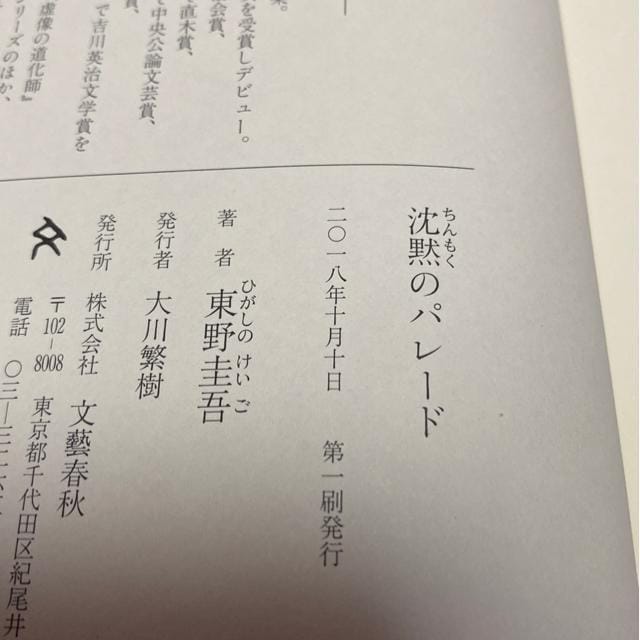 を受賞しデビュー。
会賞、
で直木賞、
で中央公論文芸賞、
賞、
で吉川英治文学賞を
虚像の道化師』
リーズのほか、
ちんもく
沈黙のパレード
二〇一八年十月十日　第一刷発行
著者　東野圭吾
ひがしの けいご
発行者　大川繁樹
発行所　株式会社　文藝春秋
〒102-8008　東京都千代田区紀尾井
電話　〇三―三二六